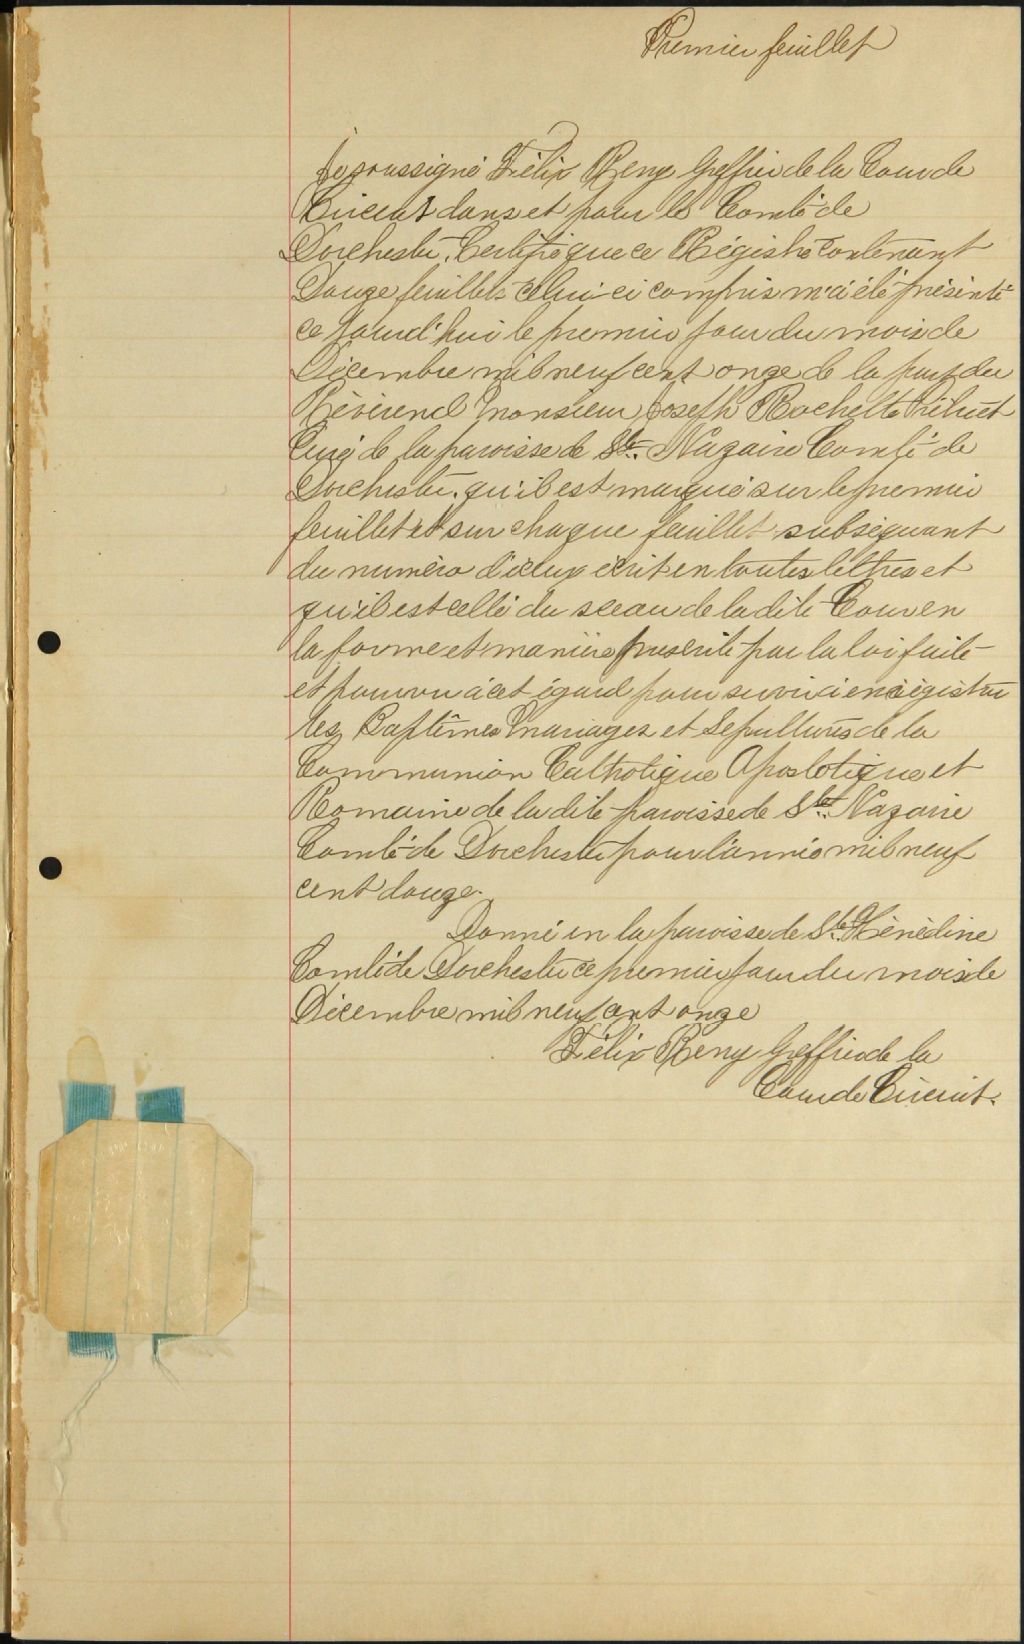 Premier feuillet
Je soussigné Félix Remy Greffier de la Cour de
Circuit dans et pour le Comté de
Dorchester, Certifie que ce Régistre contenant
Douze feuillets celui-ci compris m'a été présenté
ce jourd'hui le premier jour du mois de
Décembre mil neuf cent onze de la part du
Révérend Monsieur Joseph Rochette Prêtre et
Curé de la paroisse de Ste. Nazaire Comté de
Dorchester. qu'il est marqué sur le premier
feuillet et sur chaque feuillet subséquant
du numéro d'icelux écrit en toutes lettres et
qu'il est cellé du sceau de la dite Cour en
la forme et manière prescrite par la loi faite
et pourvu à cet égard pour servir à enrégistrer
les Baptêmes Mariages et Sépultures de la
Communion Catholique Apostolique et
Romaine de la dite paroisse de Ste. Nazaire
Comté de Dorchester pour l'année mil neuf
cent douze.
Donné en la paroisse de Ste. Hénédine
Comté de Dorchester ce premier jour du mois de
Décembre mil neuf cent onze
Félix Remy Greffier de la
Cour de Circuit.